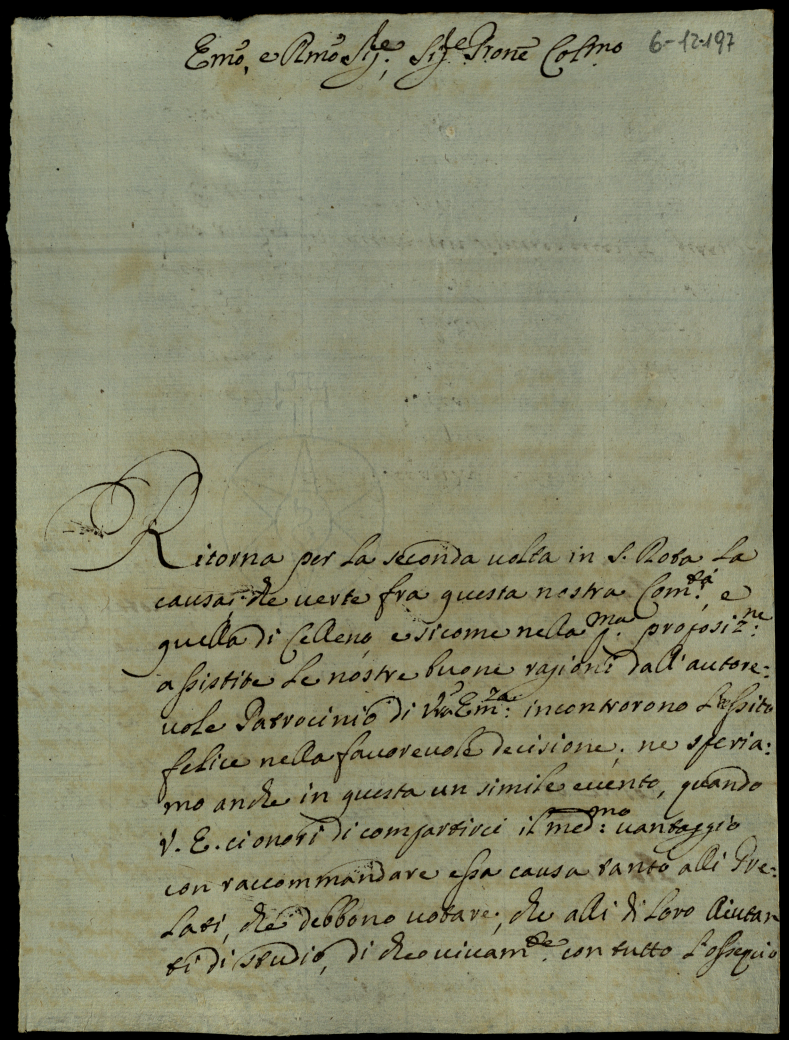 Emo, e Rmo Sig.re, Sig.re Prone Colmo 6-12-197
Ritorna per la seconda uolta in S. Rota la
causa che uerte fra questa nostra Com.tà, e
quella di Celleno, e sicome nella p.ma proposiz.ne
assistite le nostre buone ragioni dall'autore:
uole Patrocinio di Vra Em.za: incontrorono l'essito
felice nella fauoreuole decisione, ne speria:
mo anche in questa un simile euento, quando
V. E. ci onori di compartirci il med:mo uantaggio
con raccommandare essa causa tanto alli Pre:
lati, che debbono uotare, che alli di loro Aiutan
ti di studio, di che uiuam.te con tutto l'ossequio